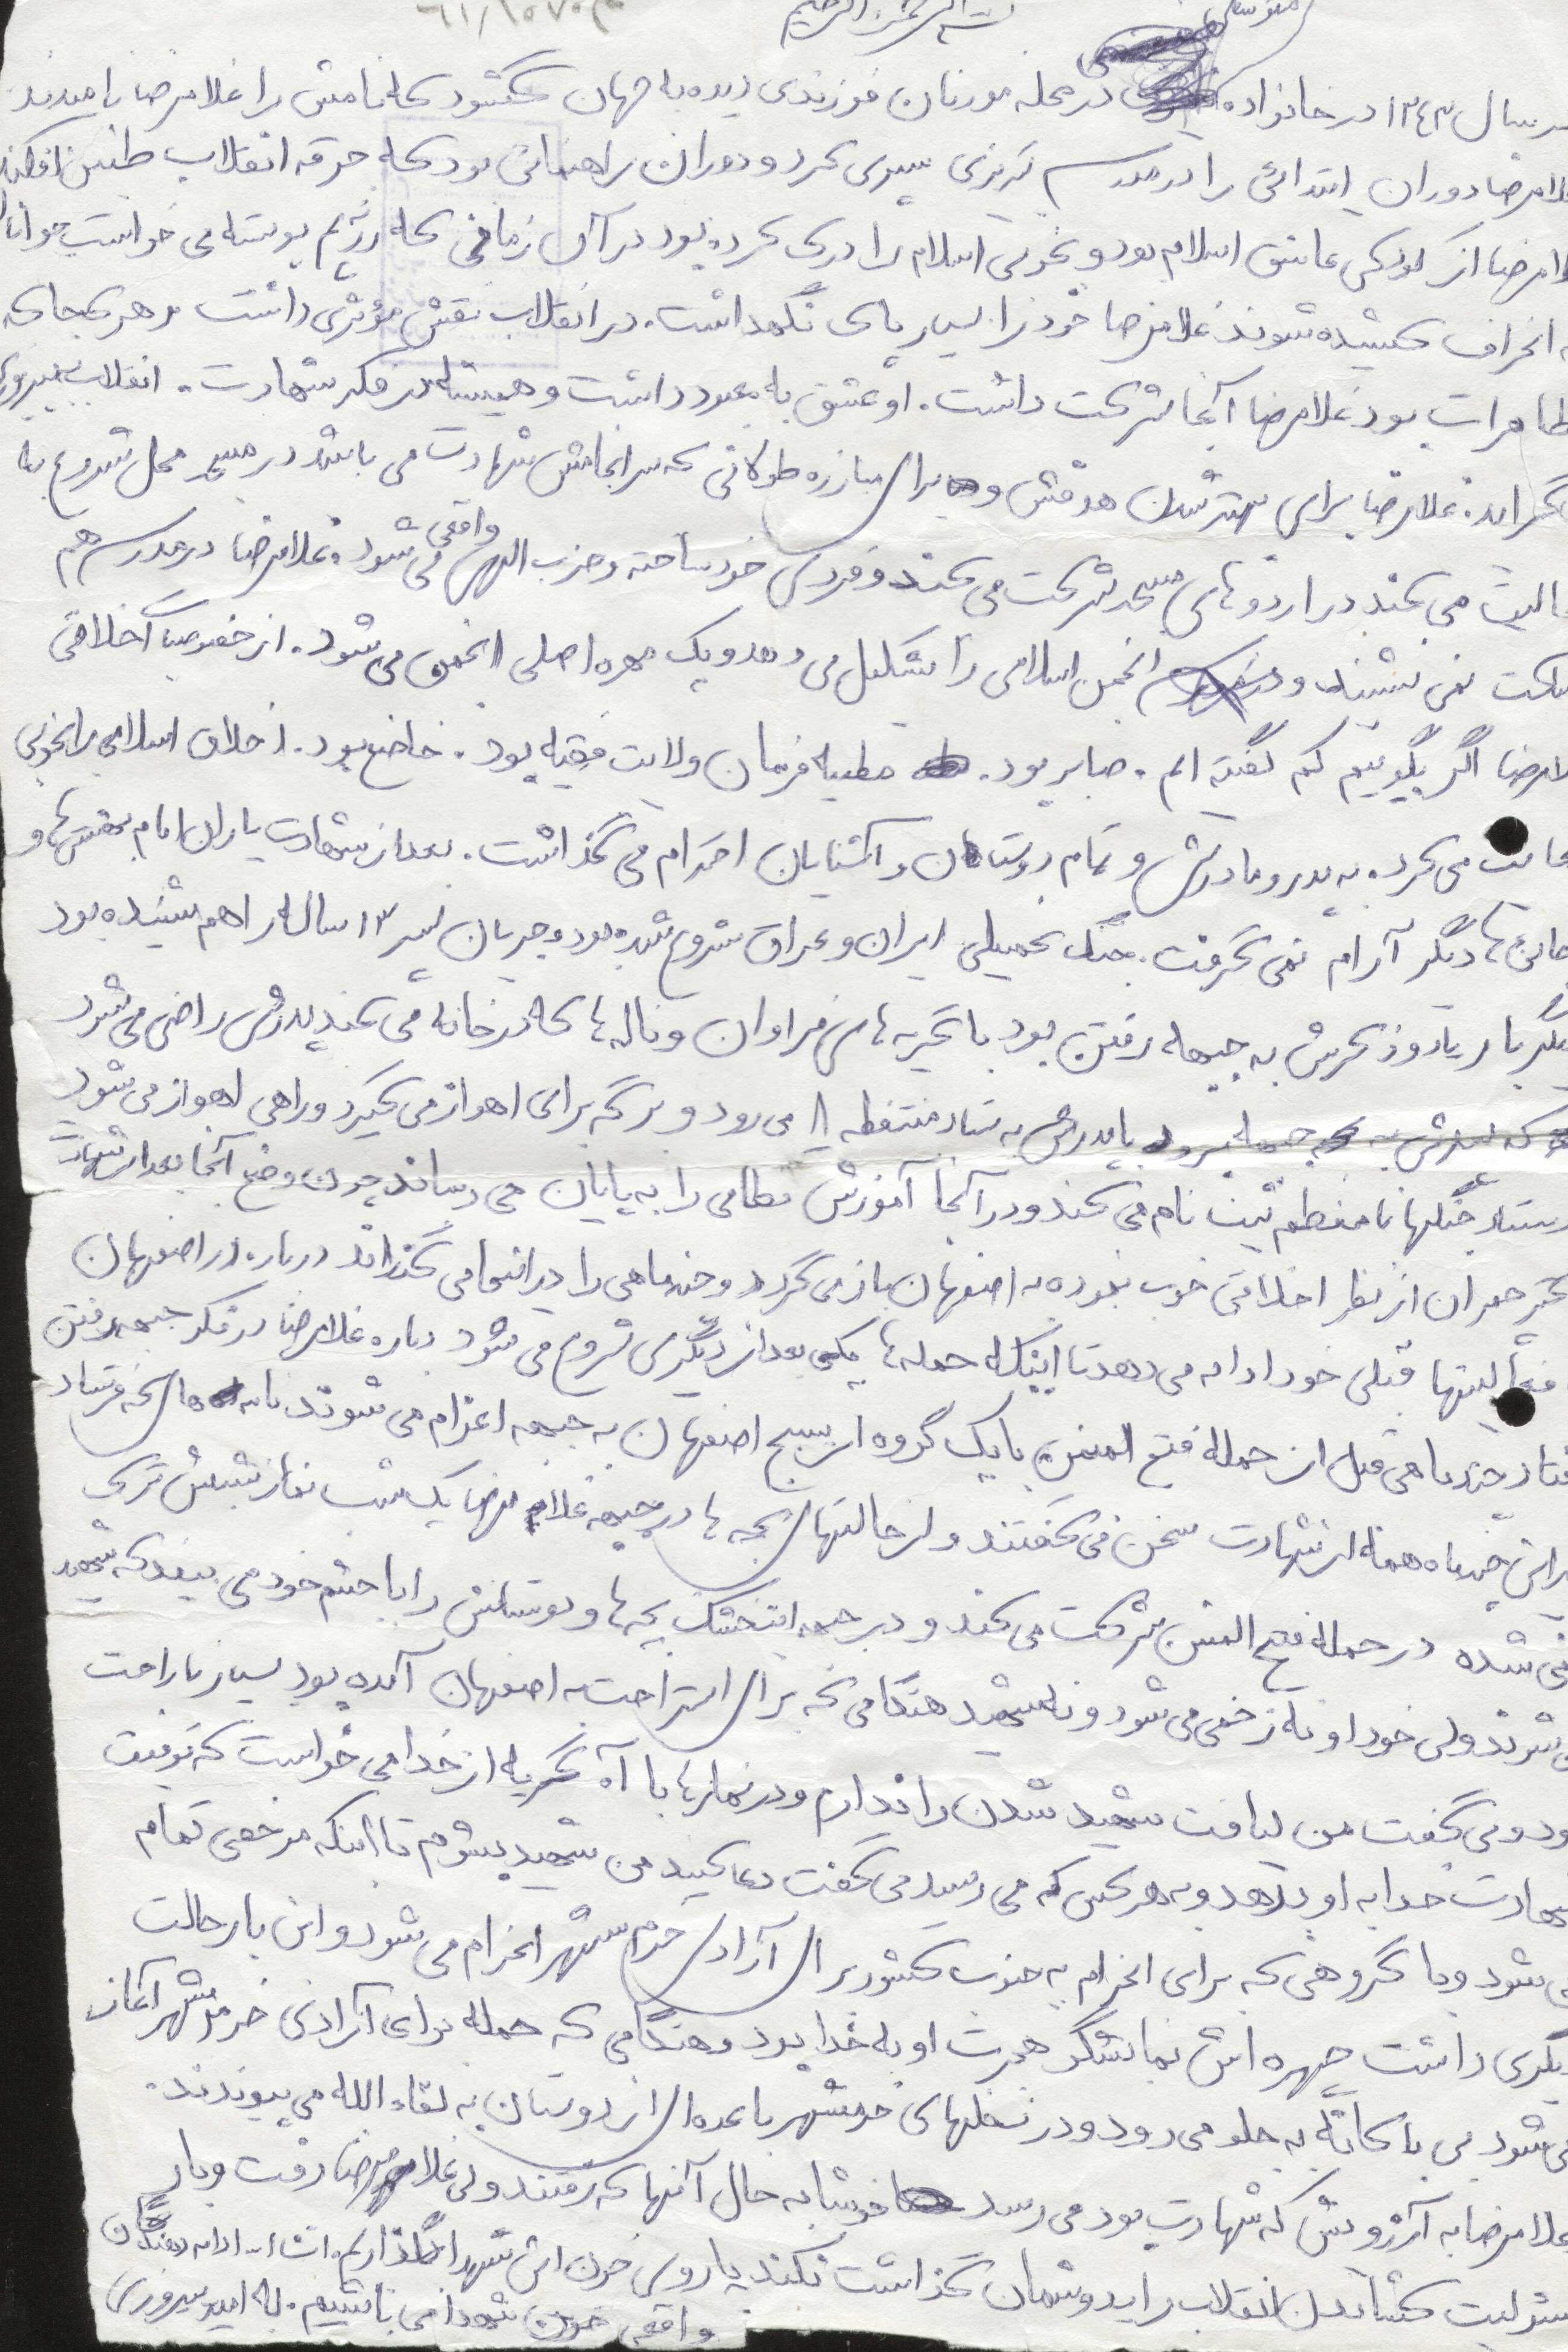 بسم الله الرحمن الرحیم
متوسطی
سال ۱۳۴۳ در خانواده در محله مورنان فرزندی دیده به جهان گشود که نامش را غلامرضا نامیدند
دوران ابتدائی را در مدرسه تبریزی سپری کرد و دوران راهنمائی بود که جرقه انقلاب طنین افکند
از کودکی عاشق اسلام بود و بخوبی اسلام را درک کرده بود در آن زمانی که رژیم پوسته می خواست جوانان
انحراف کشیده شوند غلامرضا خود را بسیار پاک نگهداشت. در انقلاب نقش مؤثری داشت و هر کجا که
بود غلامرضا آنجا شرکت داشت. او عشق به معبود داشت و همیشه در فکر شهادت. انقلاب به پیروزی
غلامرضا برای بیشتر شدن هدفش و برای مبارزه طولانی که سرانجامش شهادت می باشد در مسجد محل شروع به
می کند در اردوهای مسجد شرکت می کند و فردی خود ساخته و حزب اللهی واقعی می شود. غلامرضا در مدرسه هم
ساکت نمی نشیند و انجمن اسلامی را تشکیل می دهد و یک مهره اصلی انجمن می شود. از خصوصیات اخلاقی
اگر بگوییم کم گفته ایم. صابر بود. مطیع فرمان ولایت فقیه بود. خاضع بود. اخلاق اسلامی را بخوبی
می کرد. به پدر و مادرش و تمام دوستان و آشنایان احترام می گذاشت. بعد از شهادت یاران امام بهشتی ها و
دیگر آرام نمی گرفت. جنگ تحمیلی ایران و عراق شروع شده بود و جریان پسر ۱۳ ساله را هم شنیده بود
دیگر بار یاد و ذکرش به جبهه رفتن بود با گریه های فراوان و ناله ها که در خانه می کند پدرش راضی می شود
که پسرش به جبهه برود با پدرش به ستاد منطقه ۸ می رود و برگه برای اهواز می گیرد و راهی اهواز می شود
ستاد جنگهای نامنظم ثبت نام می کند و در آنجا آموزش نظامی را به پایان می رساند چون وضع آنجا بعد از شهادت
دکتر چمران از نظر اخلاقی خوب نبوده به اصفهان باز می گردد و چند ماهی را در اینجا می گذراند دوباره در اصفهان
فعالیتها قبلی خود ادامه می دهد تا اینکه حمله ها یکی بعد از دیگری شروع می شود دوباره غلامرضا در فکر جبهه رفتن
چند ماهی قبل از حمله فتح المبین با یک گروه از بسیج اصفهان به جبهه اعزام می شوند نامه های که فرستاد
در این چند ماه همه از شهادت سخن می گفتند و از حالتهای بچه ها در جبهه غلامرضا یک شب نماز شبش ترک
نمی شده در حمله فتح المبین شرکت می کند و در جبهه بچه ها و دوستانش را با چشم خود می بیند که شهید
می شوند ولی خود او نه زخمی می شود و نه شهید هنگامی که برای استراحت به اصفهان آمده بود بسیار ناراحت
بود و می گفت من لیاقت شهید شدن را ندارم و در نمازها با آه و گریه از خدا می خواست که توفیق
شهادت خدا به او بدهد و به هر کس که می رسید می گفت دعا کنید من شهید بشوم تا اینکه مرخصی تمام
می شود و با گروهی که برای اعزام به جنوب کشور برای آزادی خرمشهر اعزام می شود و این بار حالت
دیگری داشت چهره اش نمایشگر هجرت او به خدا بود و هنگامی که حمله برای آزادی خرمشهر آغاز
می شود به جلو می رود و در نخلهای خرمشهر با عده ای از دوستان به لقاء الله می پیوندند.
غلامرضا به آرزویش که شهادت بود می رسد خوشا به حال آنها که رفتند ولی غلامرضا رفت و بار
مسئولیت کشاندن انقلاب را به دوشمان گذاشت نکند پا روی خون این شهدا بگذاریم. ادامه دهندگان
واقعی خون شهدا می باشیم. به امید پیروزی